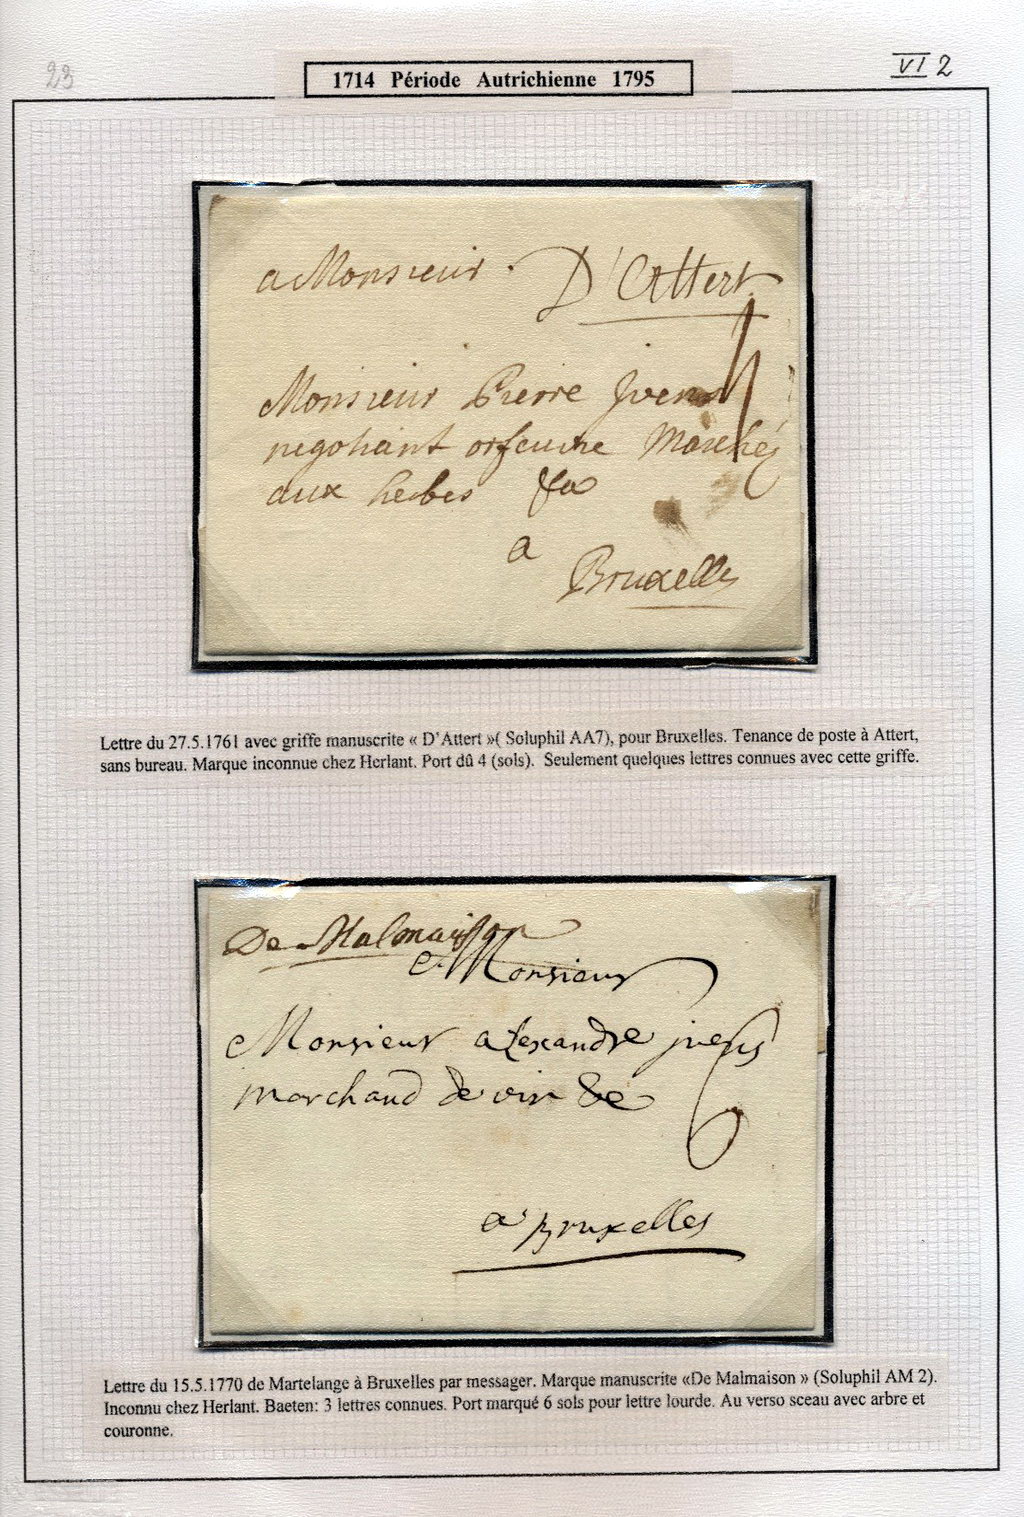 23
1714 Période Autrichienne 1795
VI 2
a Monsieur D'Attert
4
Monsieur Pierre Jvens
negotiant orfeuvre Marché
aux herbes &a
a
Bruxelles
Lettre du 27.5.1761 avec griffe manuscrite « D'Attert »( Soluphil AA7), pour Bruxelles. Tenance de poste à Attert,
sans bureau. Marque inconnue chez Herlant. Port dû 4 (sols). Seulement quelques lettres connues avec cette griffe.
De Malmaison
a Monsieur
Monsieur alexandre jvens
marchand de vin &c
6
a Bruxelles
Lettre du 15.5.1770 de Martelange à Bruxelles par messager. Marque manuscrite «De Malmaison » (Soluphil AM 2).
Inconnu chez Herlant. Baeten: 3 lettres connues. Port marqué 6 sols pour lettre lourde. Au verso sceau avec arbre et
couronne.